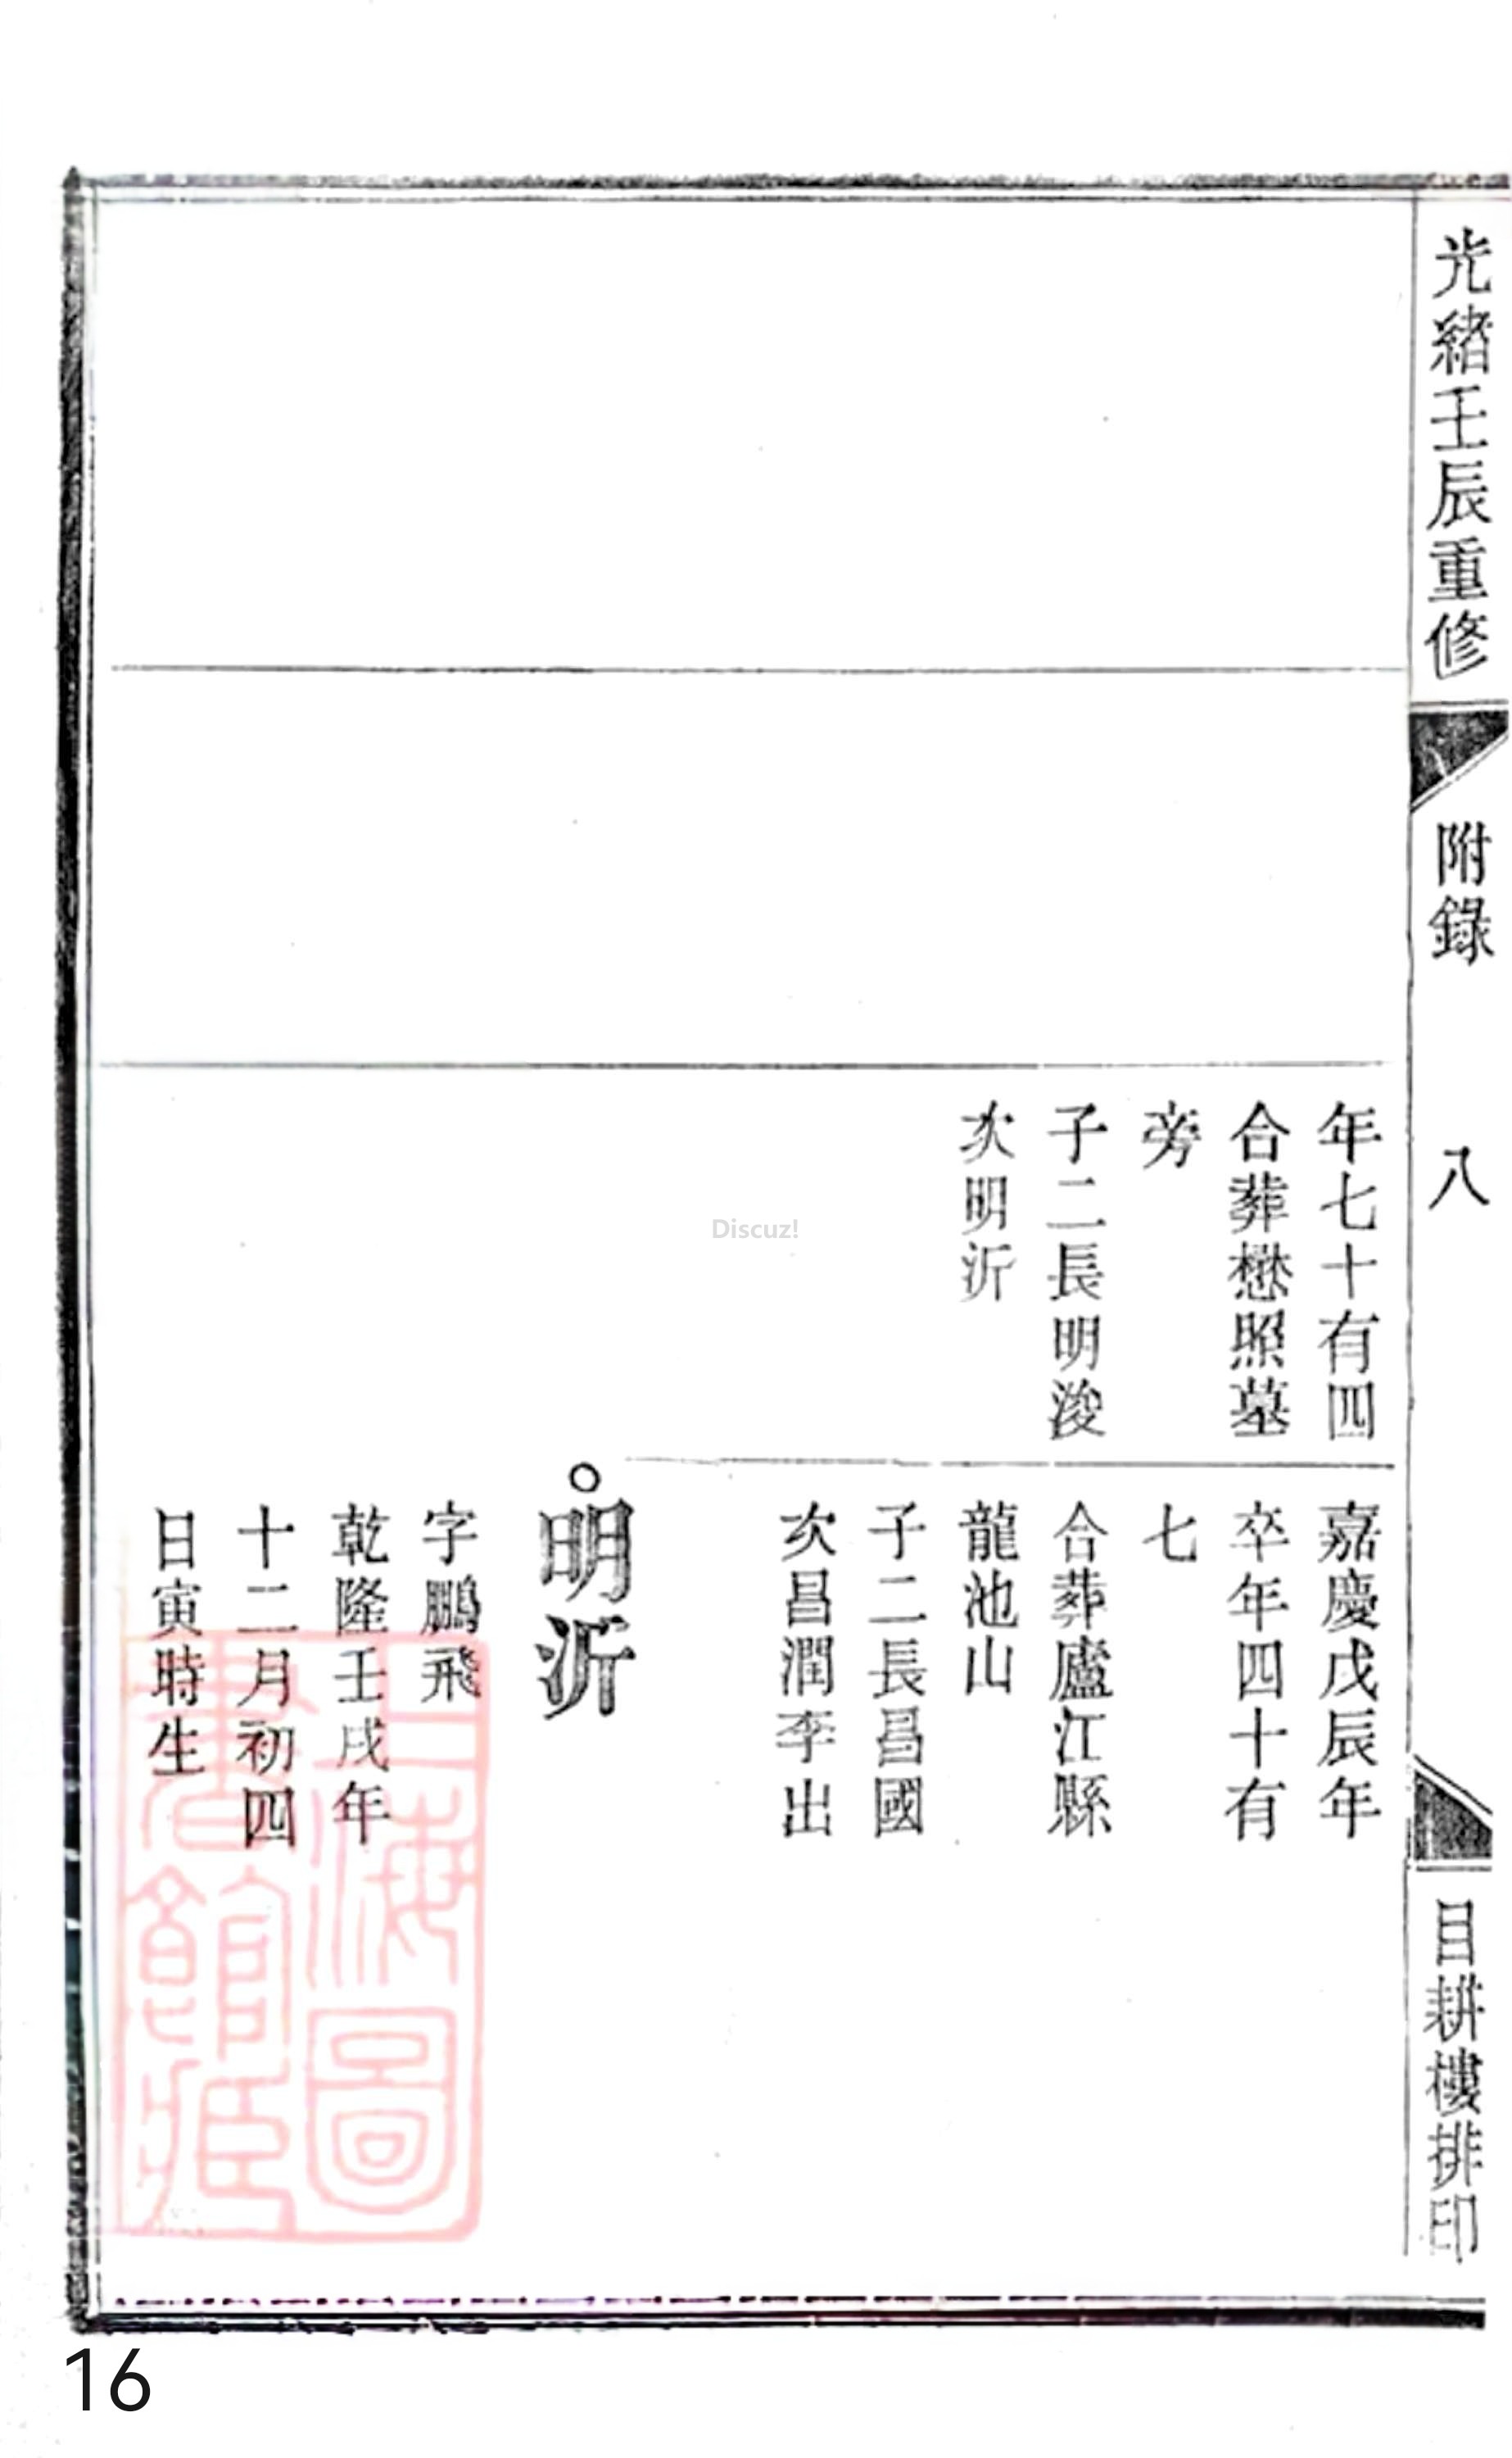 光緒壬辰重修
附錄
八
目耕樓排印
年七十有四
合葬懋照墓
旁
子二長明浚
次明沂
嘉慶戊辰年
卒年四十有
七
合葬廬江縣
龍池山
子二長昌國
次昌潤李出
明沂
字鵬飛
乾隆壬戌年
十二月初四
日寅時生
上海圖
書館藏
Discuz!
16